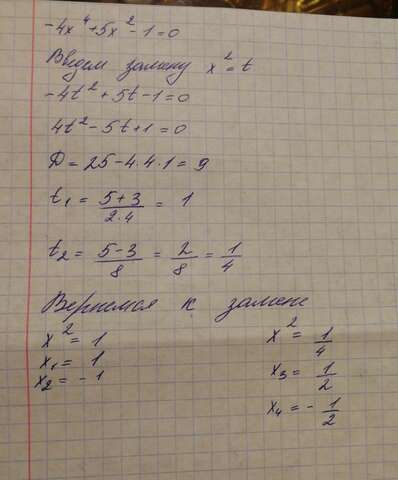 -4x⁴+5x²-1=0
Введем замену x²=t
-4t²+5t-1=0
4t²-5t+1=0
D=25-4·4·1=9
t₁= (5+3)/(2·4) = 1
t₂= (5-3)/8 = 2/8 = 1/4
Вернемся к замене
x²=1
x₁=1
x₂=-1
x²= 1/4
x₃= 1/2
x₄=- 1/2